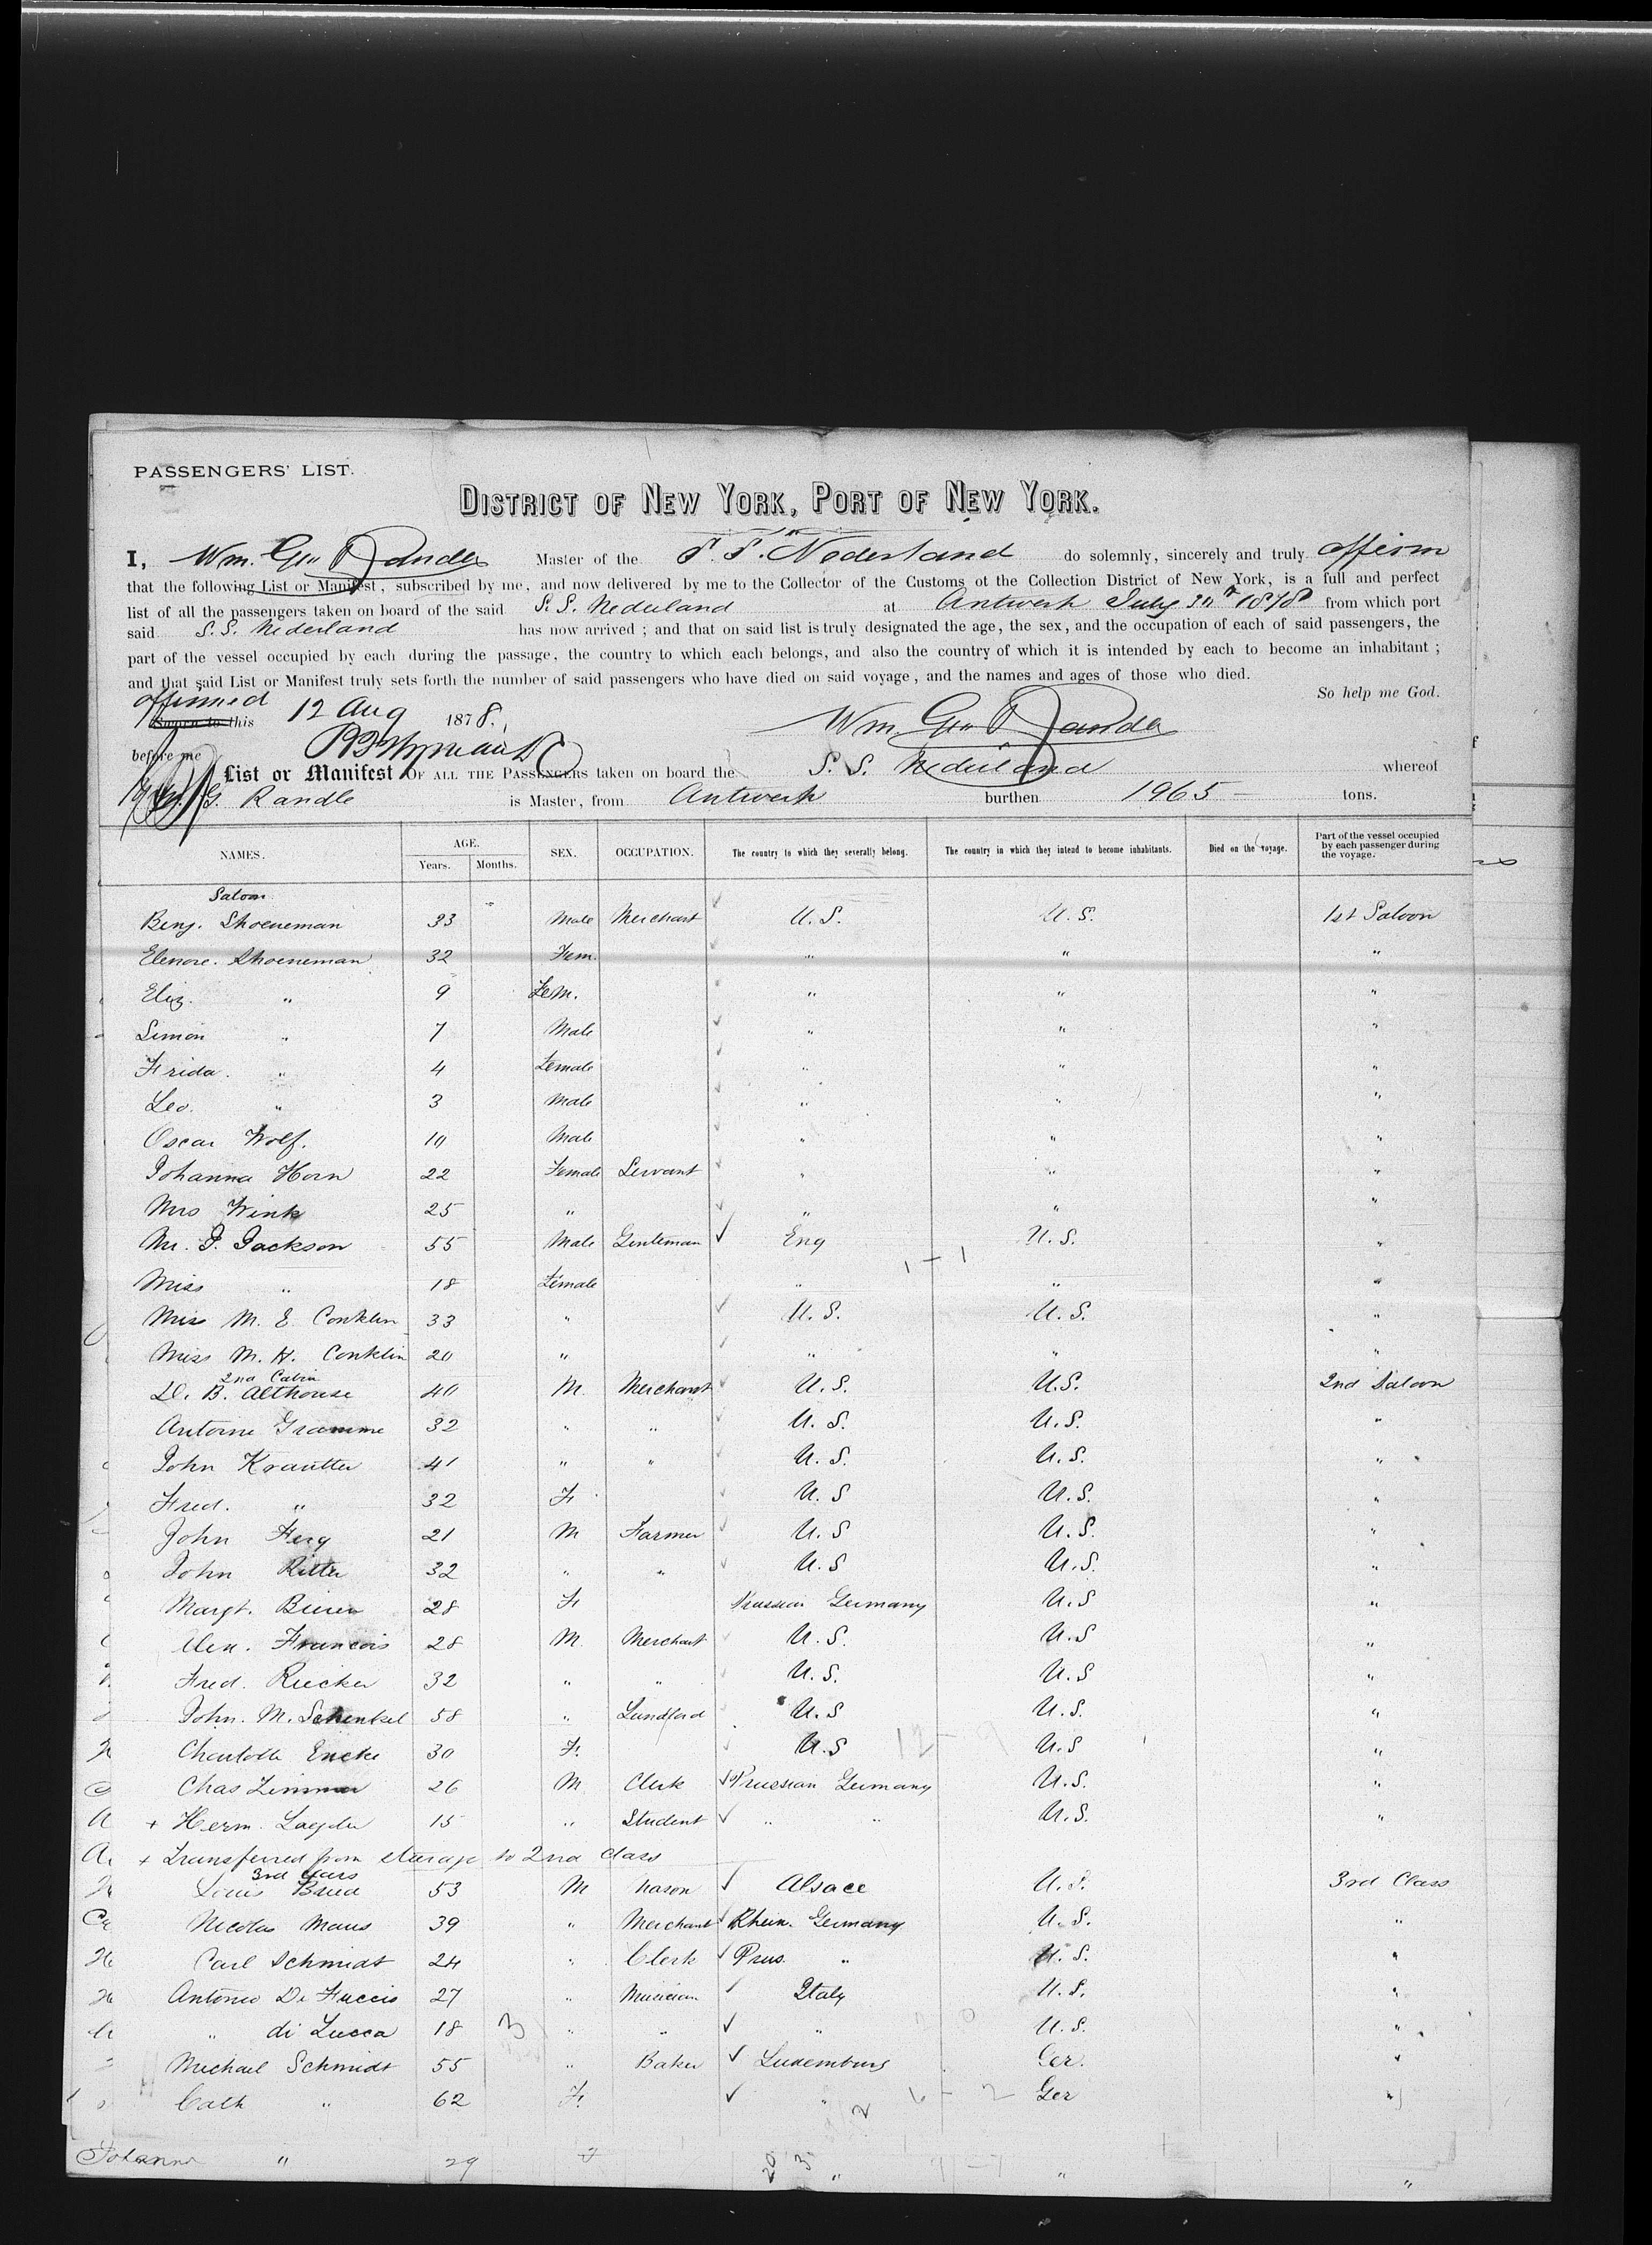 PASSENGERS' LIST.
DISTRICT OF NEW YORK, PORT OF NEW YORK.
I, Wm. Geo Randle Master of the S. S. Nederland do solemnly, sincerely and truly affirm
that the following List or Manifest, subscribed by me, and now delivered by me to the Collector of the Customs ot the Collection District of New York, is a full and perfect
list of all the passengers taken on board of the said S. S. Nederland at Antwerp July 30th 1878 from which port
said S. S. Nederland has now arrived ; and that on said list is truly designated the age, the sex, and the occupation of each of said passengers, the
part of the vessel occupied by each during the passage, the country to which each belongs, and also the country of which it is intended by each to become an inhabitant ;
and that said List or Manifest truly sets forth the number of said passengers who have died on said voyage, and the names and ages of those who died.
So help me God.
affirmed
Sworn to this 12 Aug 1878. Wm. Geo Randle
before me
List or Manifest OF ALL THE PASSENGERS taken on board the S. S. Nederland whereof
G. Randle is Master, from Antwerp burthen 1965 - tons.
NAMES. AGE. Years. Months. SEX. OCCUPATION. The country to which they severally belong. The country in which they intend to become inhabitants. Died on the voyage. Part of the vessel occupied by each passenger during the voyage.
Saloon
Benj. Shoeneman 33 Male Merchant U. S. U. S. 1st Saloon
Elenore. Shoeneman 32 Fem. " " "
Eliz. " 9 Fem. " " "
Simon " 7 Male " " "
Frida. " 4 Female " " "
Leo. " 3 Male " " "
Oscar Wolf. 10 Male " " "
Johanna Horn 22 Female Servant " " "
Mrs Wink 25 " " " "
Mr. J. Jackson 55 Male Gentleman Eng U. S. "
Miss " 18 Female " " "
Mrs M. E. Conklin 33 " U. S. U. S. "
Miss M. H. Conklin 20 " " " "
2nd Cabin
D. B. Althouse 40 M. Merchant U. S. U.S. 2nd Saloon
Antoine Gramme 32 " " U. S. U.S. "
John Krautter 41 " " U. S. U. S. "
Fred. " 32 F. U. S U.S. "
John Ferg 21 M Farmer U. S U.S. "
John Ritter 32 " " U. S U.S. "
Margt. 28 F. Prussian Germany U.S "
Alex. Francois 28 M. Merchant U. S. U.S "
Fred. Ruecker 32 " " U. S. U.S "
John. M. Schenkel 58 " Landlord U.S U.S. "
Charlotte Encke 30 F. U.S U.S "
Chas Zimmer 26 M Clerk Prussian Germany U.S. "
+ Herm. 15 " Student " " U.S. "
+ Transferred from steerage to 2nd Class
3rd Class
Louis 53 M Mason Alsace U. S. 3rd Class
Nicolas Maus 39 " Merchant Rhein. Germany U. S. "
Carl Schmidt 24 " Clerk Prus. " U. S. "
Antonio De Fuccio 27 " Musician Italy U. S. "
" di Lucca 18 " " " U. S. "
Michael Schmidt 55 " Baker Luxemburg Ger. "
Cath " 62 F. " Ger "
Johanna " 29 " " "